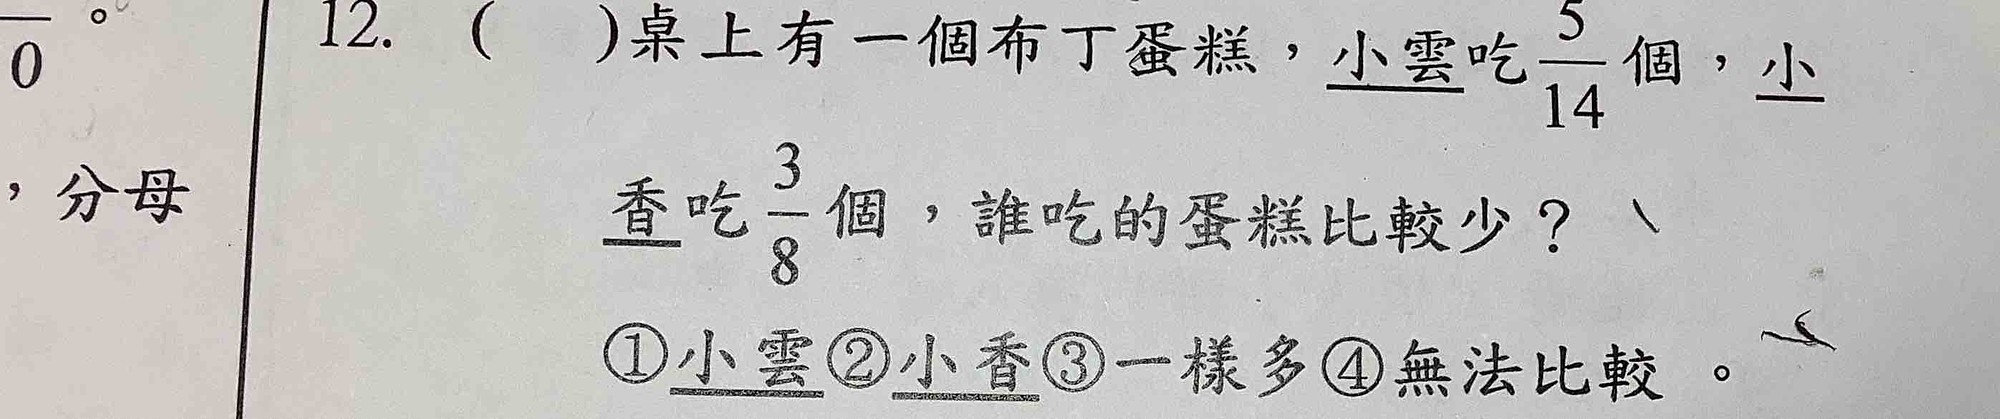 0 。
，分母
12. (　　)桌上有一個布丁蛋糕，小雲吃5/14個，小
香吃3/8個，誰吃的蛋糕比較少？
①小雲②小香③一樣多④無法比較。